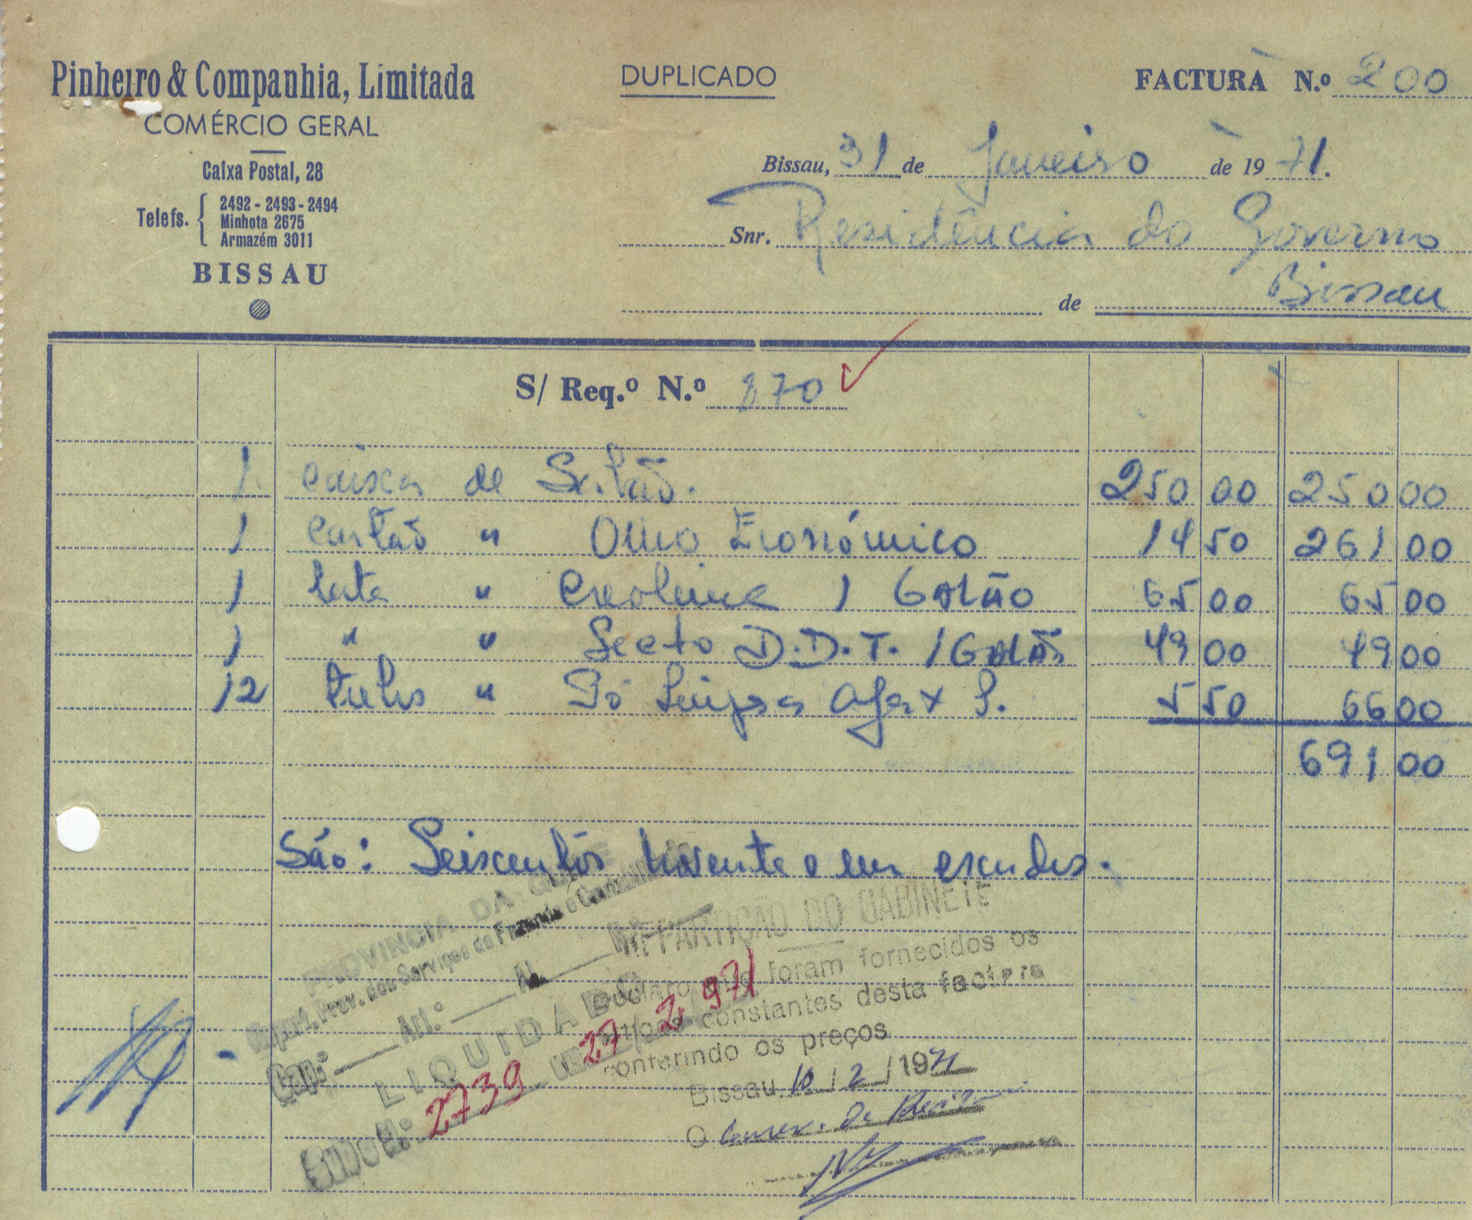 Pinheiro & Companhia, Limitada
COMÉRCIO GERAL
Caixa Postal, 28
Telefs. 2492 - 2493 - 2494
Minhota 2675
Armazém 3011
BISSAU
DUPLICADO
FACTURA N.º 200
Bissau, 31 de Janeiro de 1971.
Snr. Residência do Governo
de Bissau
S/ Req.º N.º 270
1 caixa de 250 00 250 00
1 cartão " Omo Económico 14 50 261 00
1 lata " Creolina 1 Galão 65 00 65 00
1 " " Secto D.D.T. 1 Galão 49 00 49 00
12 tubos " Pó Limpesa Ajax P. 5 50 66 00
691 00
São: Seiscentos noventa e um escudos.
PROVINCIA DA
Repart. Prov. dos Serviços de Fazenda e Contabilidade
Cap.º Art.º N.
LIQUIDADO
2739 27 2 971
REPARTIÇÃO DO GABINETE
Declaro que foram fornecidos os
artigos constantes desta factura
conferindo os preços
Bissau, 10 / 2 / 1971
O